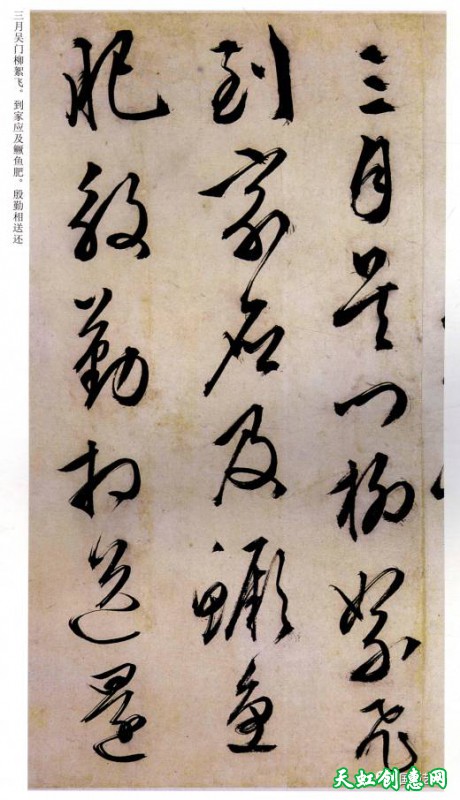 三月吴门柳絮飞。到家应及鳜鱼肥。殷勤相送还
三月吴门柳絮飞
到家应及鳜鱼
肥殷勤相送还
天虹创意网